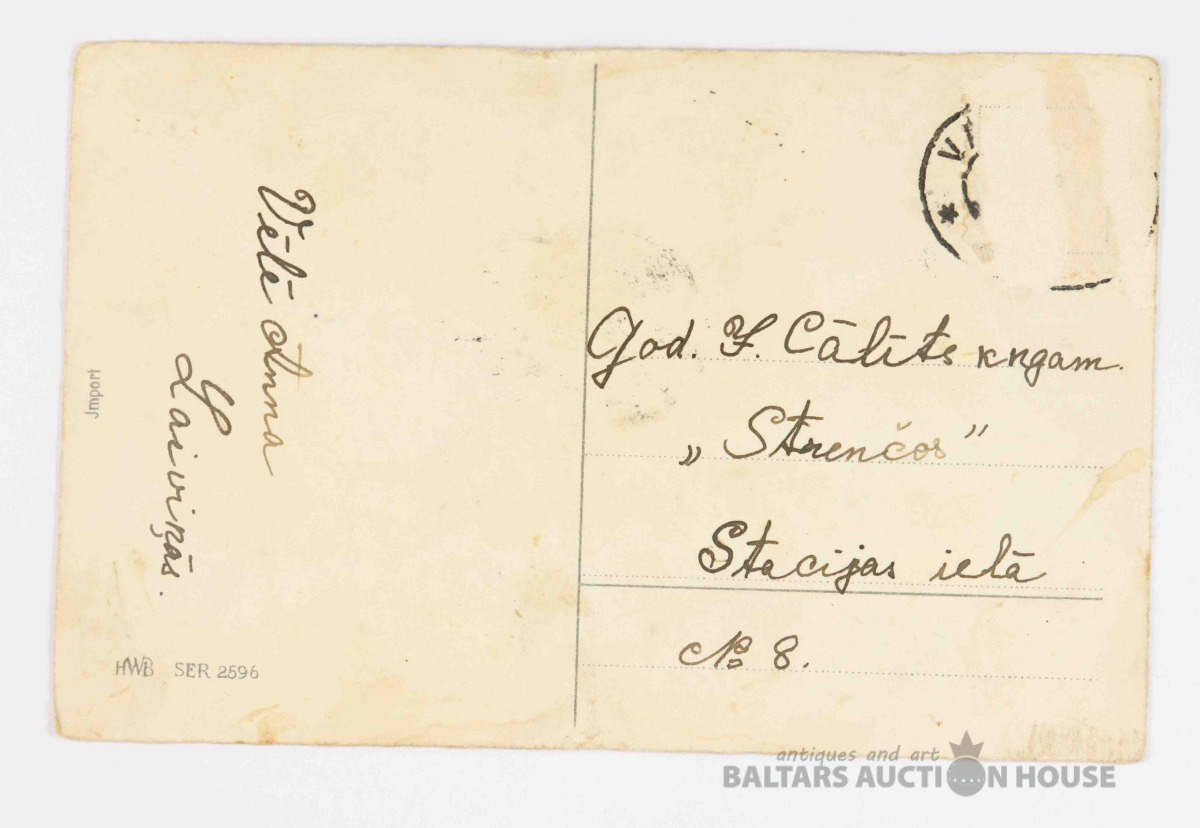 Vēlē Anna
Laiviņās.
Jmport
HWB SER 2596
V
God. J. Cālīts kngam.
„Strenčos”
Stacijas ielā
No 8.
antiques and art
BALTARS AUCTION HOUSE